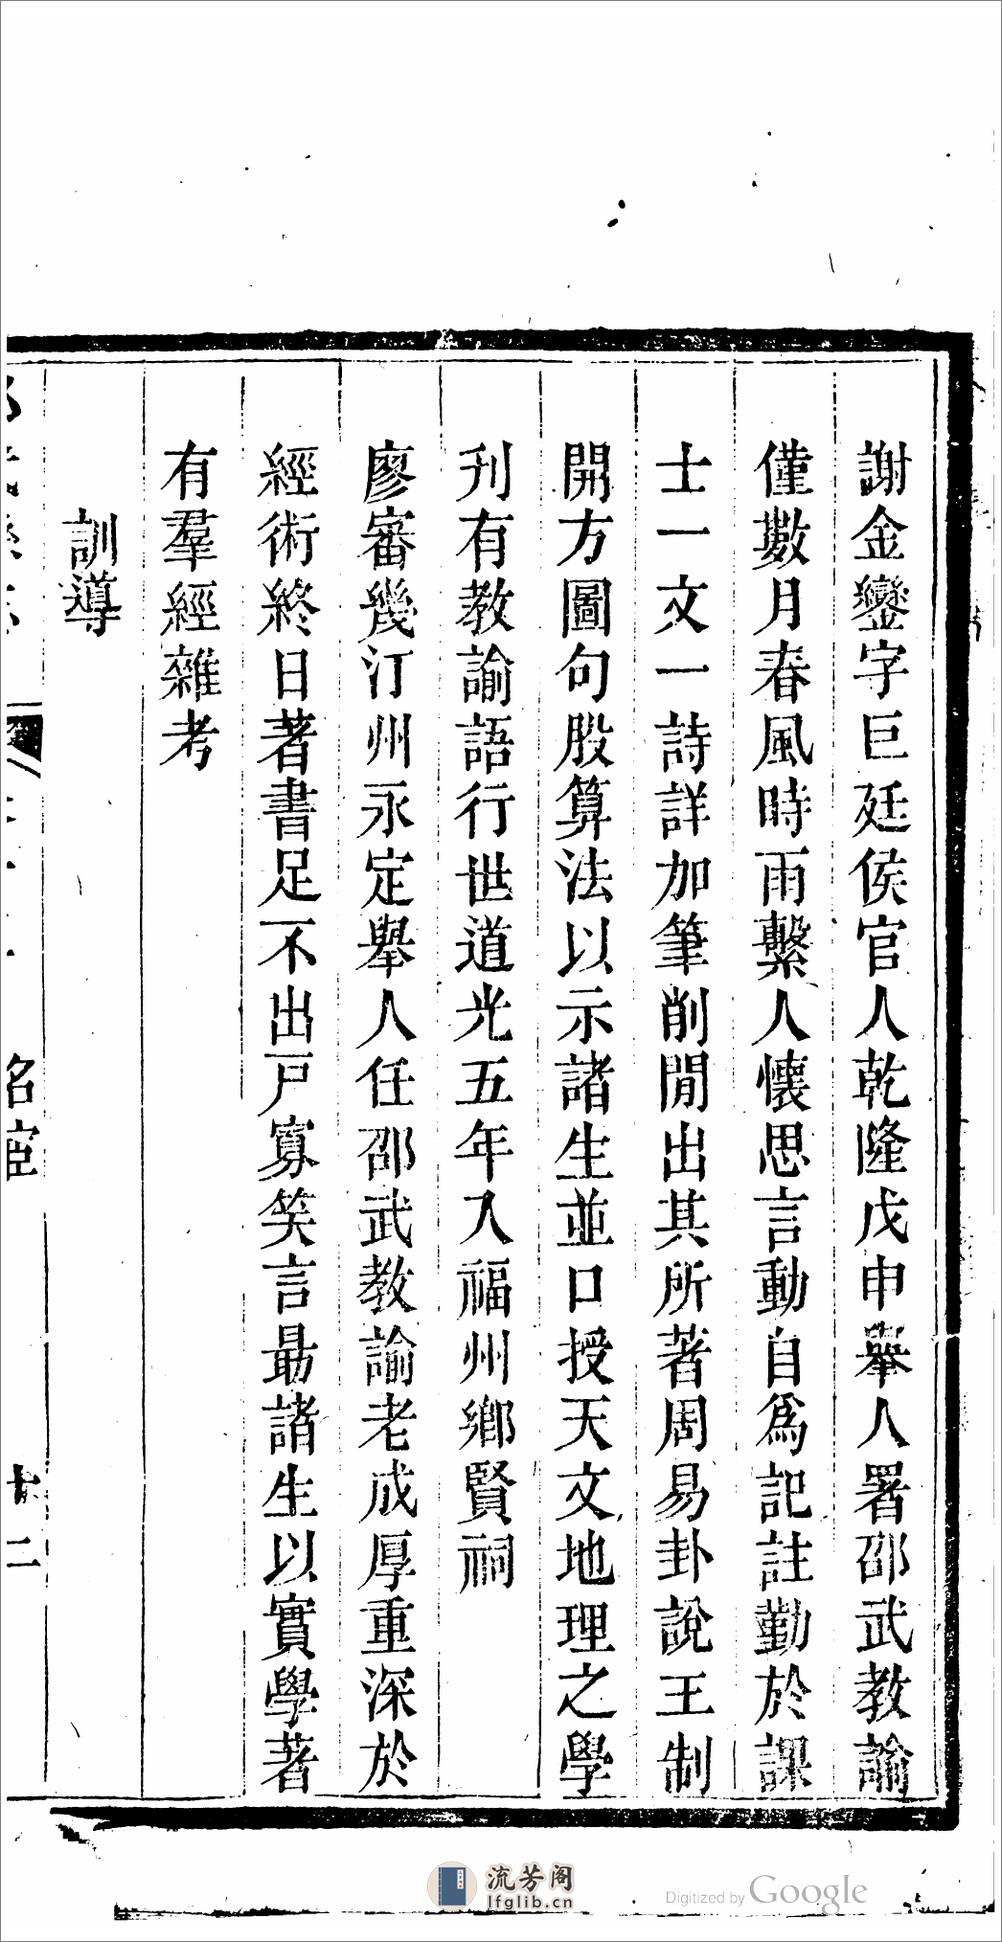 謝金鑾字巨廷侯官人乾隆戊申舉人署邵武教諭
僅數月春風時雨繫人懷思言動自爲記註勤於課
士一文一詩詳加筆削閒出其所著周易卦說王制
開方圖句股算法以示諸生並口授天文地理之學
刋有教諭語行世道光五年入福州鄉賢祠
廖審幾汀州永定舉人任邵武教諭老成厚重深於
經術終日著書足不出戸寡笑言最諸生以實學著
有羣經雜考
訓導
名宦
十二
流芳阁
lfglib.cn
Digitized by Google